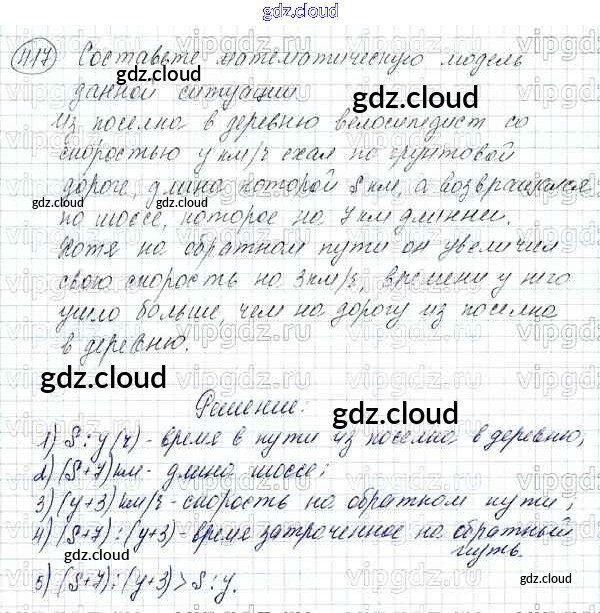 gdz.cloud
417 Составьте математическую модель
данной ситуации
Из поселка в деревню велосипедист со
скоростью у км/ч ехал по грунтовой
дороге, длина которой S км, а возвращался
по шоссе, которое на 7 км длинней.
Хотя на обратном пути он увеличил
свою скорость на 3 км/ч, времени у него
ушло больше, чем на дорогу из поселка
в деревню.
gdz.cloud
Решение:
1) S : y (ч) - время в пути из поселка в деревню;
2) (S+7) км - длина шоссе;
3) (y+3) км/ч - скорость на обратном пути;
4) (S+7) : (y+3) - время затраченное на обратный
путь.
5) (S+7) : (y+3) > S : y.
gdz.cloud
vipgdz.ru